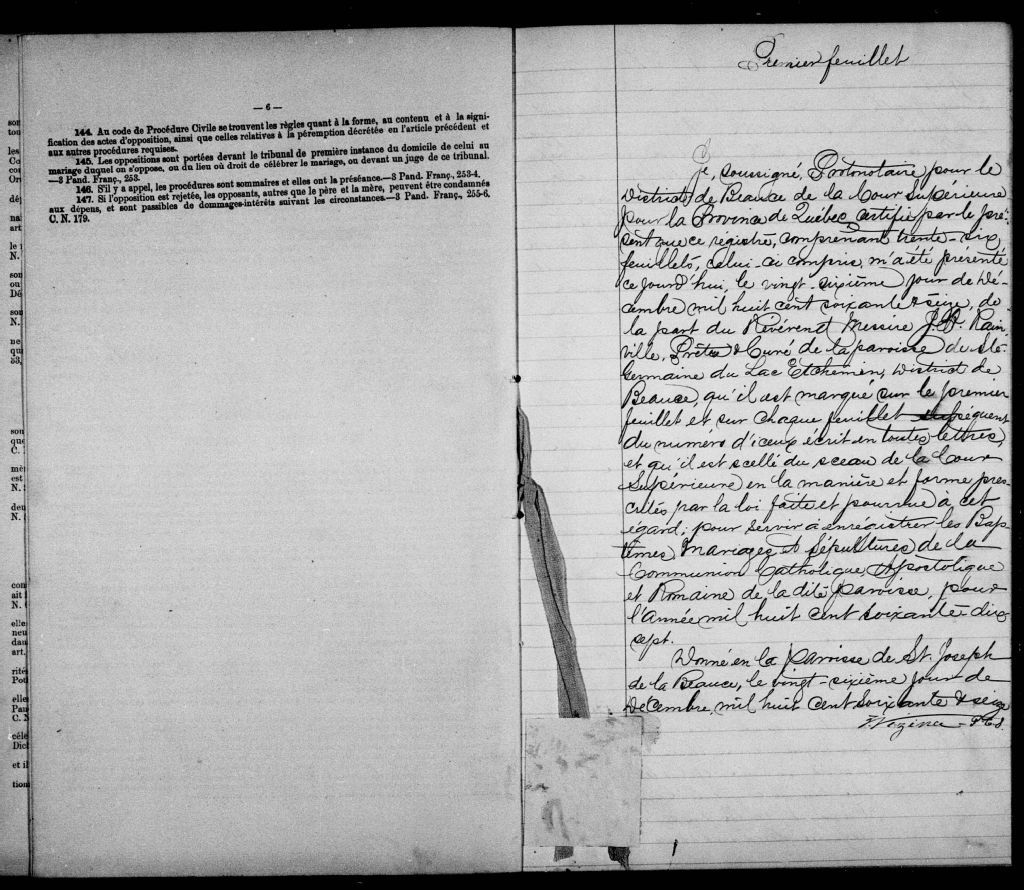 — 6 —
144. Au code de Procédure Civile se trouvent les règles quant à la forme, au contenu et à la signi-
fication des actes d'opposition, ainsi que celles relatives à la péremption décrétée en l'article précédent et
aux autres procédures requises.
145. Les oppositions sont portées devant le tribunal de première instance du domicile de celui au
mariage duquel on s'oppose, ou du lieu où droit de célébrer le mariage, ou devant un juge de ce tribunal.
—3 Pand. Franç., 253.
146. S'il y a appel, les procédures sont sommaires et elles ont la préséance.—3 Pand. Franç., 253-4.
147. Si l'opposition est rejetée, les opposants, autres que le père et la mère, peuvent être condamnés
aux dépens, et sont passibles de dommages-intérêts suivant les circonstances.—3 Pand. Franç., 255-6.
C. N. 179.
Premier feuillet
Je, soussigné, Protonotaire pour le
District de Beauce de la Cour Supérieure
pour la Province de Québec, certifie par le pré-
sent que ce régistre, comprenant trente-six
feuillets, celui-ci compris, m'a été présenté
ce jourd'hui, le vingt-sixième jour de Dé-
cembre mil huit cent soixante & seize, de
la part du Révérend Messire J. B. Rain-
ville, Prêtre & Curé de la paroisse de Ste
Germaine du Lac Etchemin, District de
Beauce, qu'il est marqué sur le premier
feuillet et sur chaque feuillet subséquent
du numéro d'iceux écrit en toutes lettres,
et qu'il est scellé du sceau de la Cour
Supérieure en la manière et forme pres-
crites par la loi faite et pourvue à cet
égard; pour servir à enrégistrer les Bap-
têmes, Mariages et Sépultures de la
Communion Catholique, Apostolique
et Romaine de la dite paroisse, pour
l'Année mil huit cent soixante-dix
sept.
Donné en la paroisse de St. Joseph
de la Beauce, le vingt-sixième jour de
Décembre, mil huit cent soixante & seize
Vézina P.C.S.